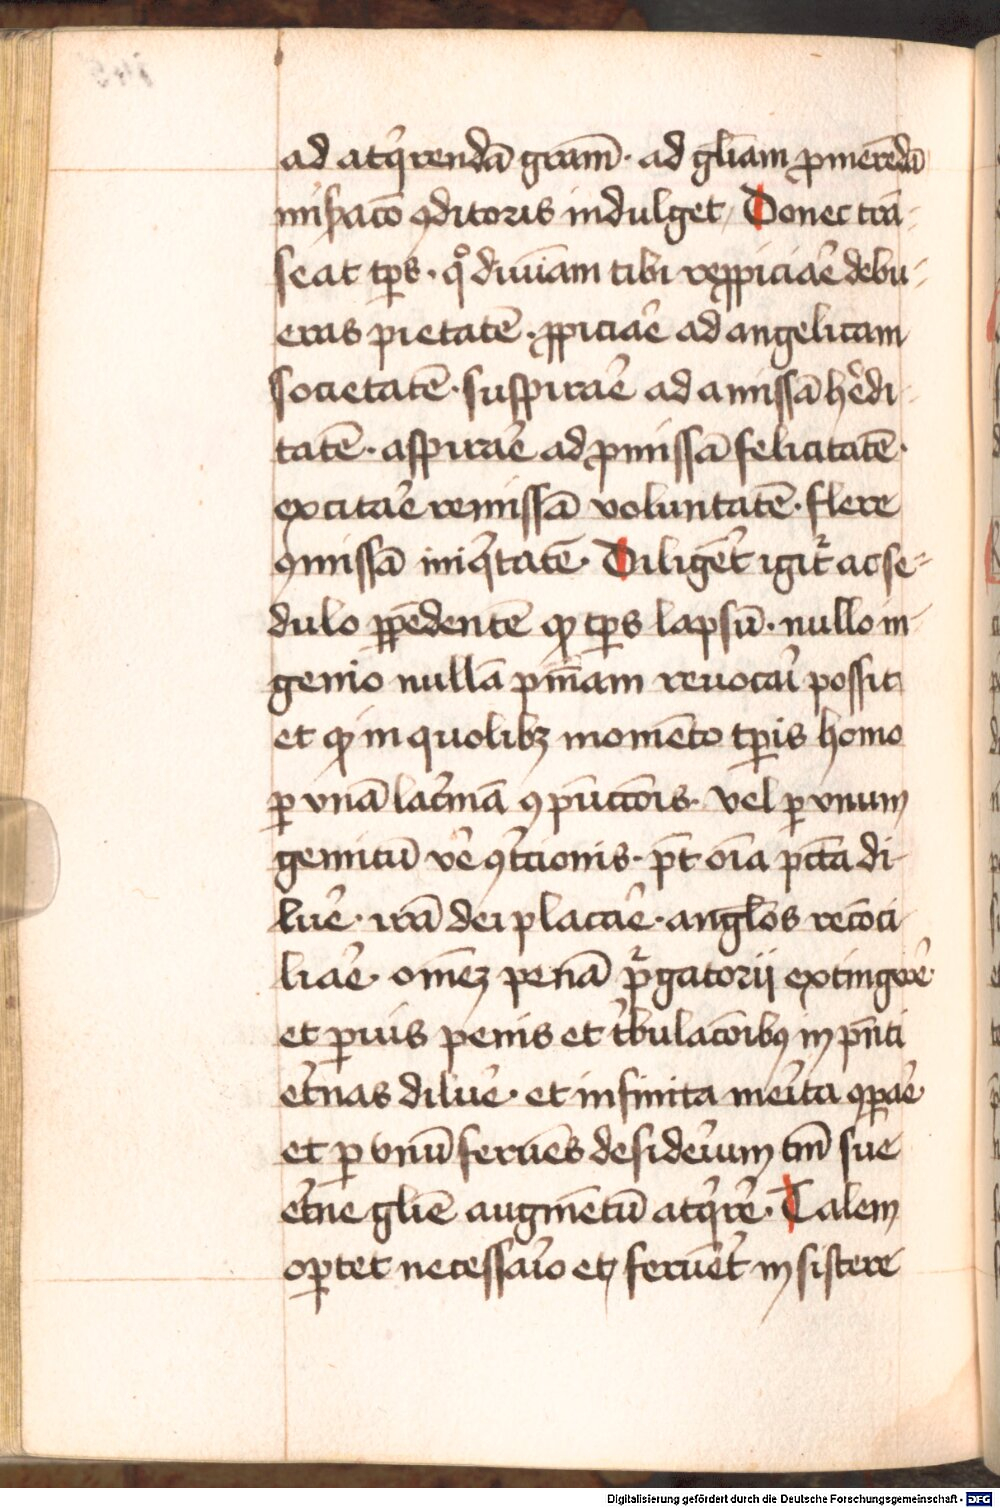 ad acq̇rendā gram̄· ad gl̄iam ꝓmerēdā
mis̄racō ꝯditoris indulget / Donec trā-
seat tp̄s· qͦ diuīam tibi respiciare debu-
eras pietatē· ꝓpiciare ad angelicam
societatē· suspirar̄e ad amissā hēdi-
tatē· aspirar̄e ad ꝓmissā felicitatē·
excitar̄e remissā voluntatē· flere
ꝯmissā iniq̇tatē· Diligēt̉ igit᷑ ac se-
dulo ꝑpēdentē qꝫ tp̄s lapsū· nullo in-
genio nullā pn̄iam reuocari possit
et qꝫ in quolibꝫ momēto tp̄is homo
ꝑ vnā lac̉mā ꝯpūctōis· vel ꝑ vnum
gemitū ve᷑ ꝯt̉cionis· pt̄ oīa pctā di-
lue᷑· irā dei placar̄e· angl̄os recōci-
liar̄e· omēꝫ penā pᷣgatorij extingwe᷑·
et ꝑuis penis et t̉bulacōibꝰ in pn̄ti
et̉nas dilue᷑· et infinita me᷑ita ꝯꝑar̄e·
et ꝑ vnū feruēs deside᷑ium tm̄ sue
et̉ne gl̄ie augmētū acq̇re᷑· Talem
oꝑtet necessa᷑io et feruēt̉ insistere